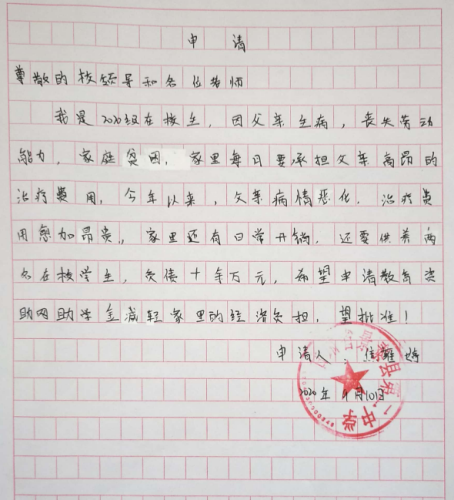 申请
尊敬的校领导和各位老师
我是2020级在校生，因父亲生病，丧失劳动
能力，家庭贫困，家里每日要承担父亲高昂的
治疗费用，今年以来，父亲病情恶化，治疗费
用愈加昂贵，家里还有日常开销，还要供养两
名在校学生，负债十余万元，希望申请教育资
助网助学金减轻家里的经济负担，望批准！
申请人：焦
2020年 月10日
县第一中学